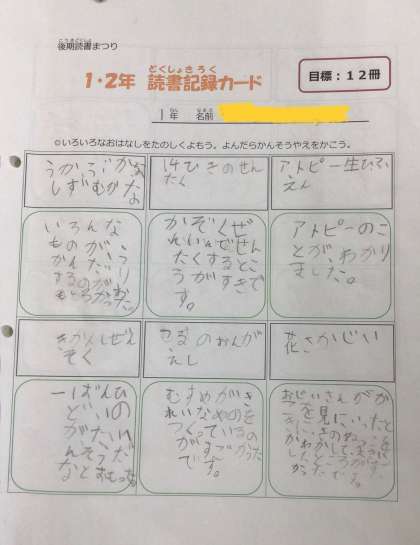 こうきどくしょ
後期読書まつり
どくしょきろく
1・2年 読書記録カード
目標：１２冊
ねん なまえ
1年 名前
◎いろいろなおはなしをたのしくよもう。よんだらかんそうやえをかこう。
うかぶかな
しずむかな
14ひきのせん
たく
アトピー性ひふ
えん
いろんな
ものが、う
かんだり
するのが
おもしろかった
かぞくぜ
んいんでせん
たくするとこ
うがすきで
す。
アトピーのこ
とが、わかり
ました。
きかんしぜん
そく
つるのおんが
えし
花さかじい
一ばんひ
どいの
が
なとおもった
むすめがき
れいなぬのを
つくっているの
が、すごかった
です。
おじいさんがが
を見にいったと
かったです。